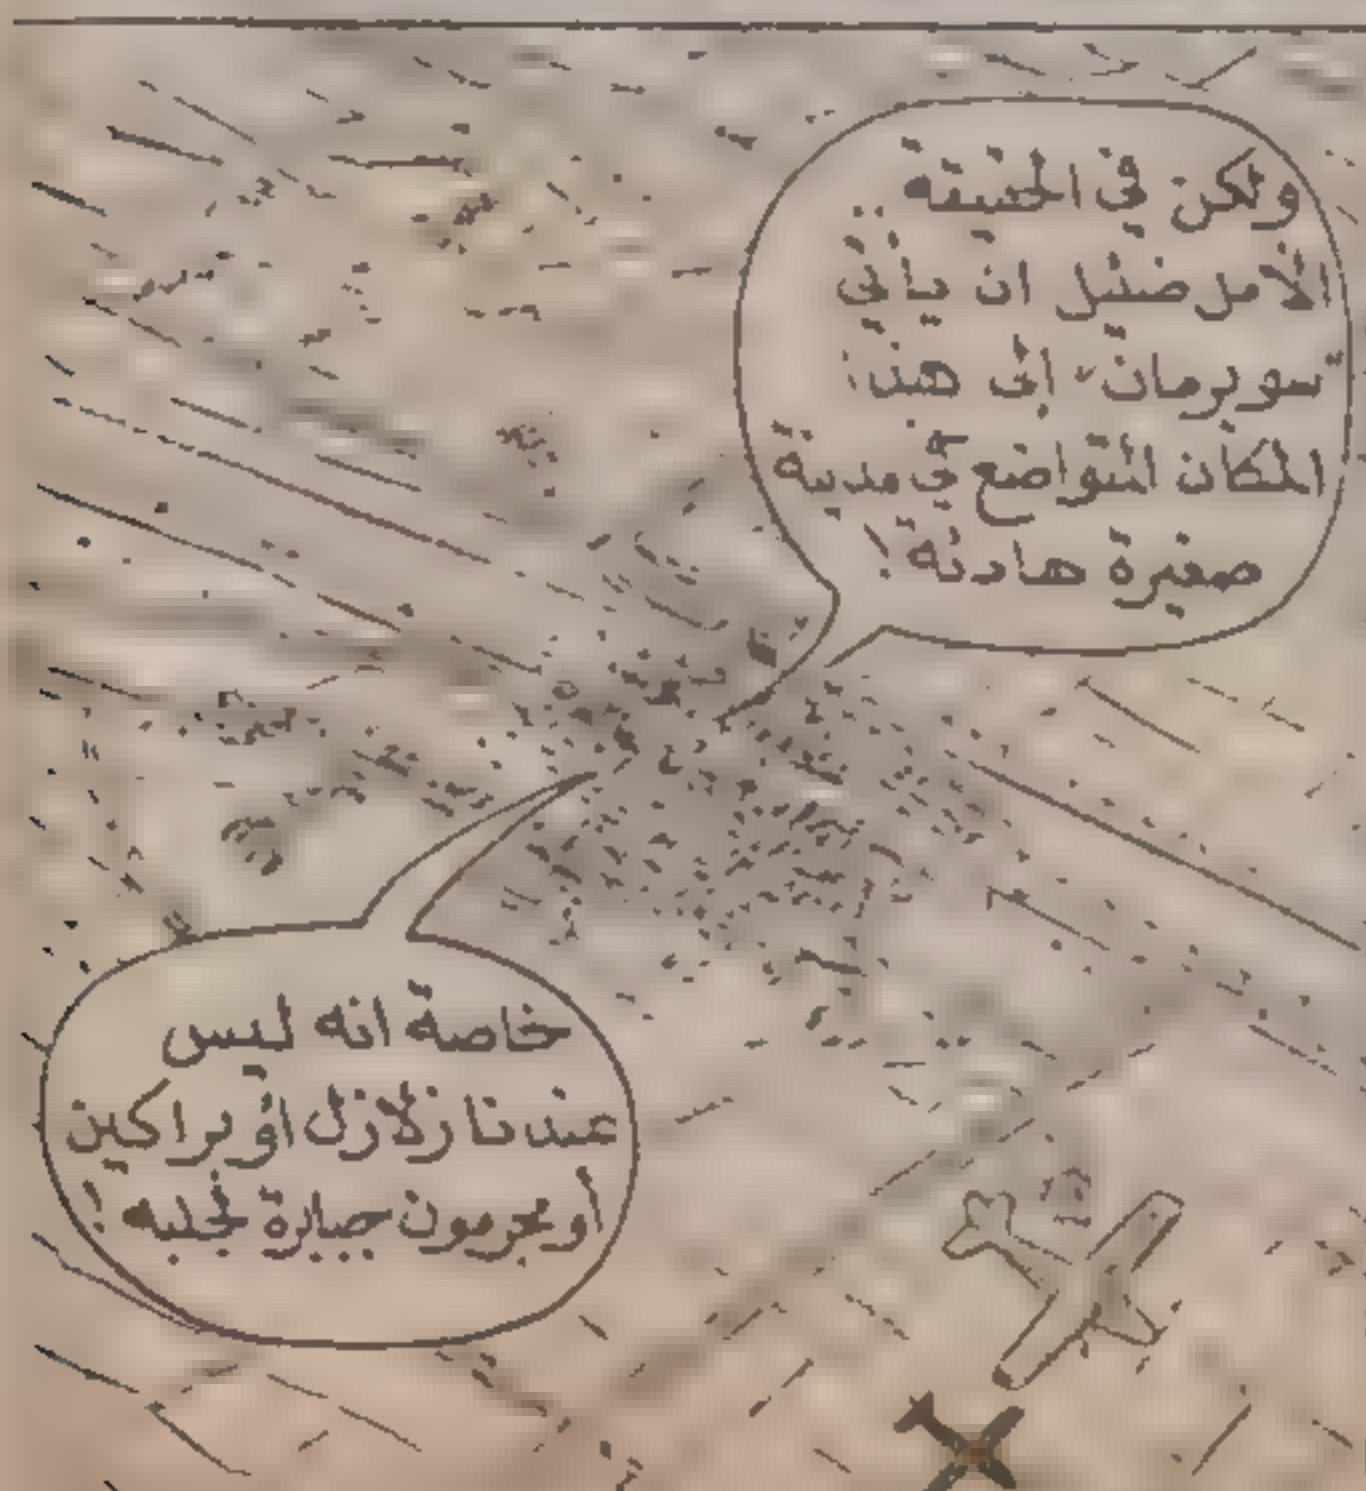 ولكن في الحقيقة
الأمل ضئيل ان يأتي
"سوبرمان" الى هذا
المكان المتواضع في مدينة
صغيرة هادئة!
خاصة انه ليس
عندنا زلازل او براكين
أو مجرمون جبابرة لجلبه!